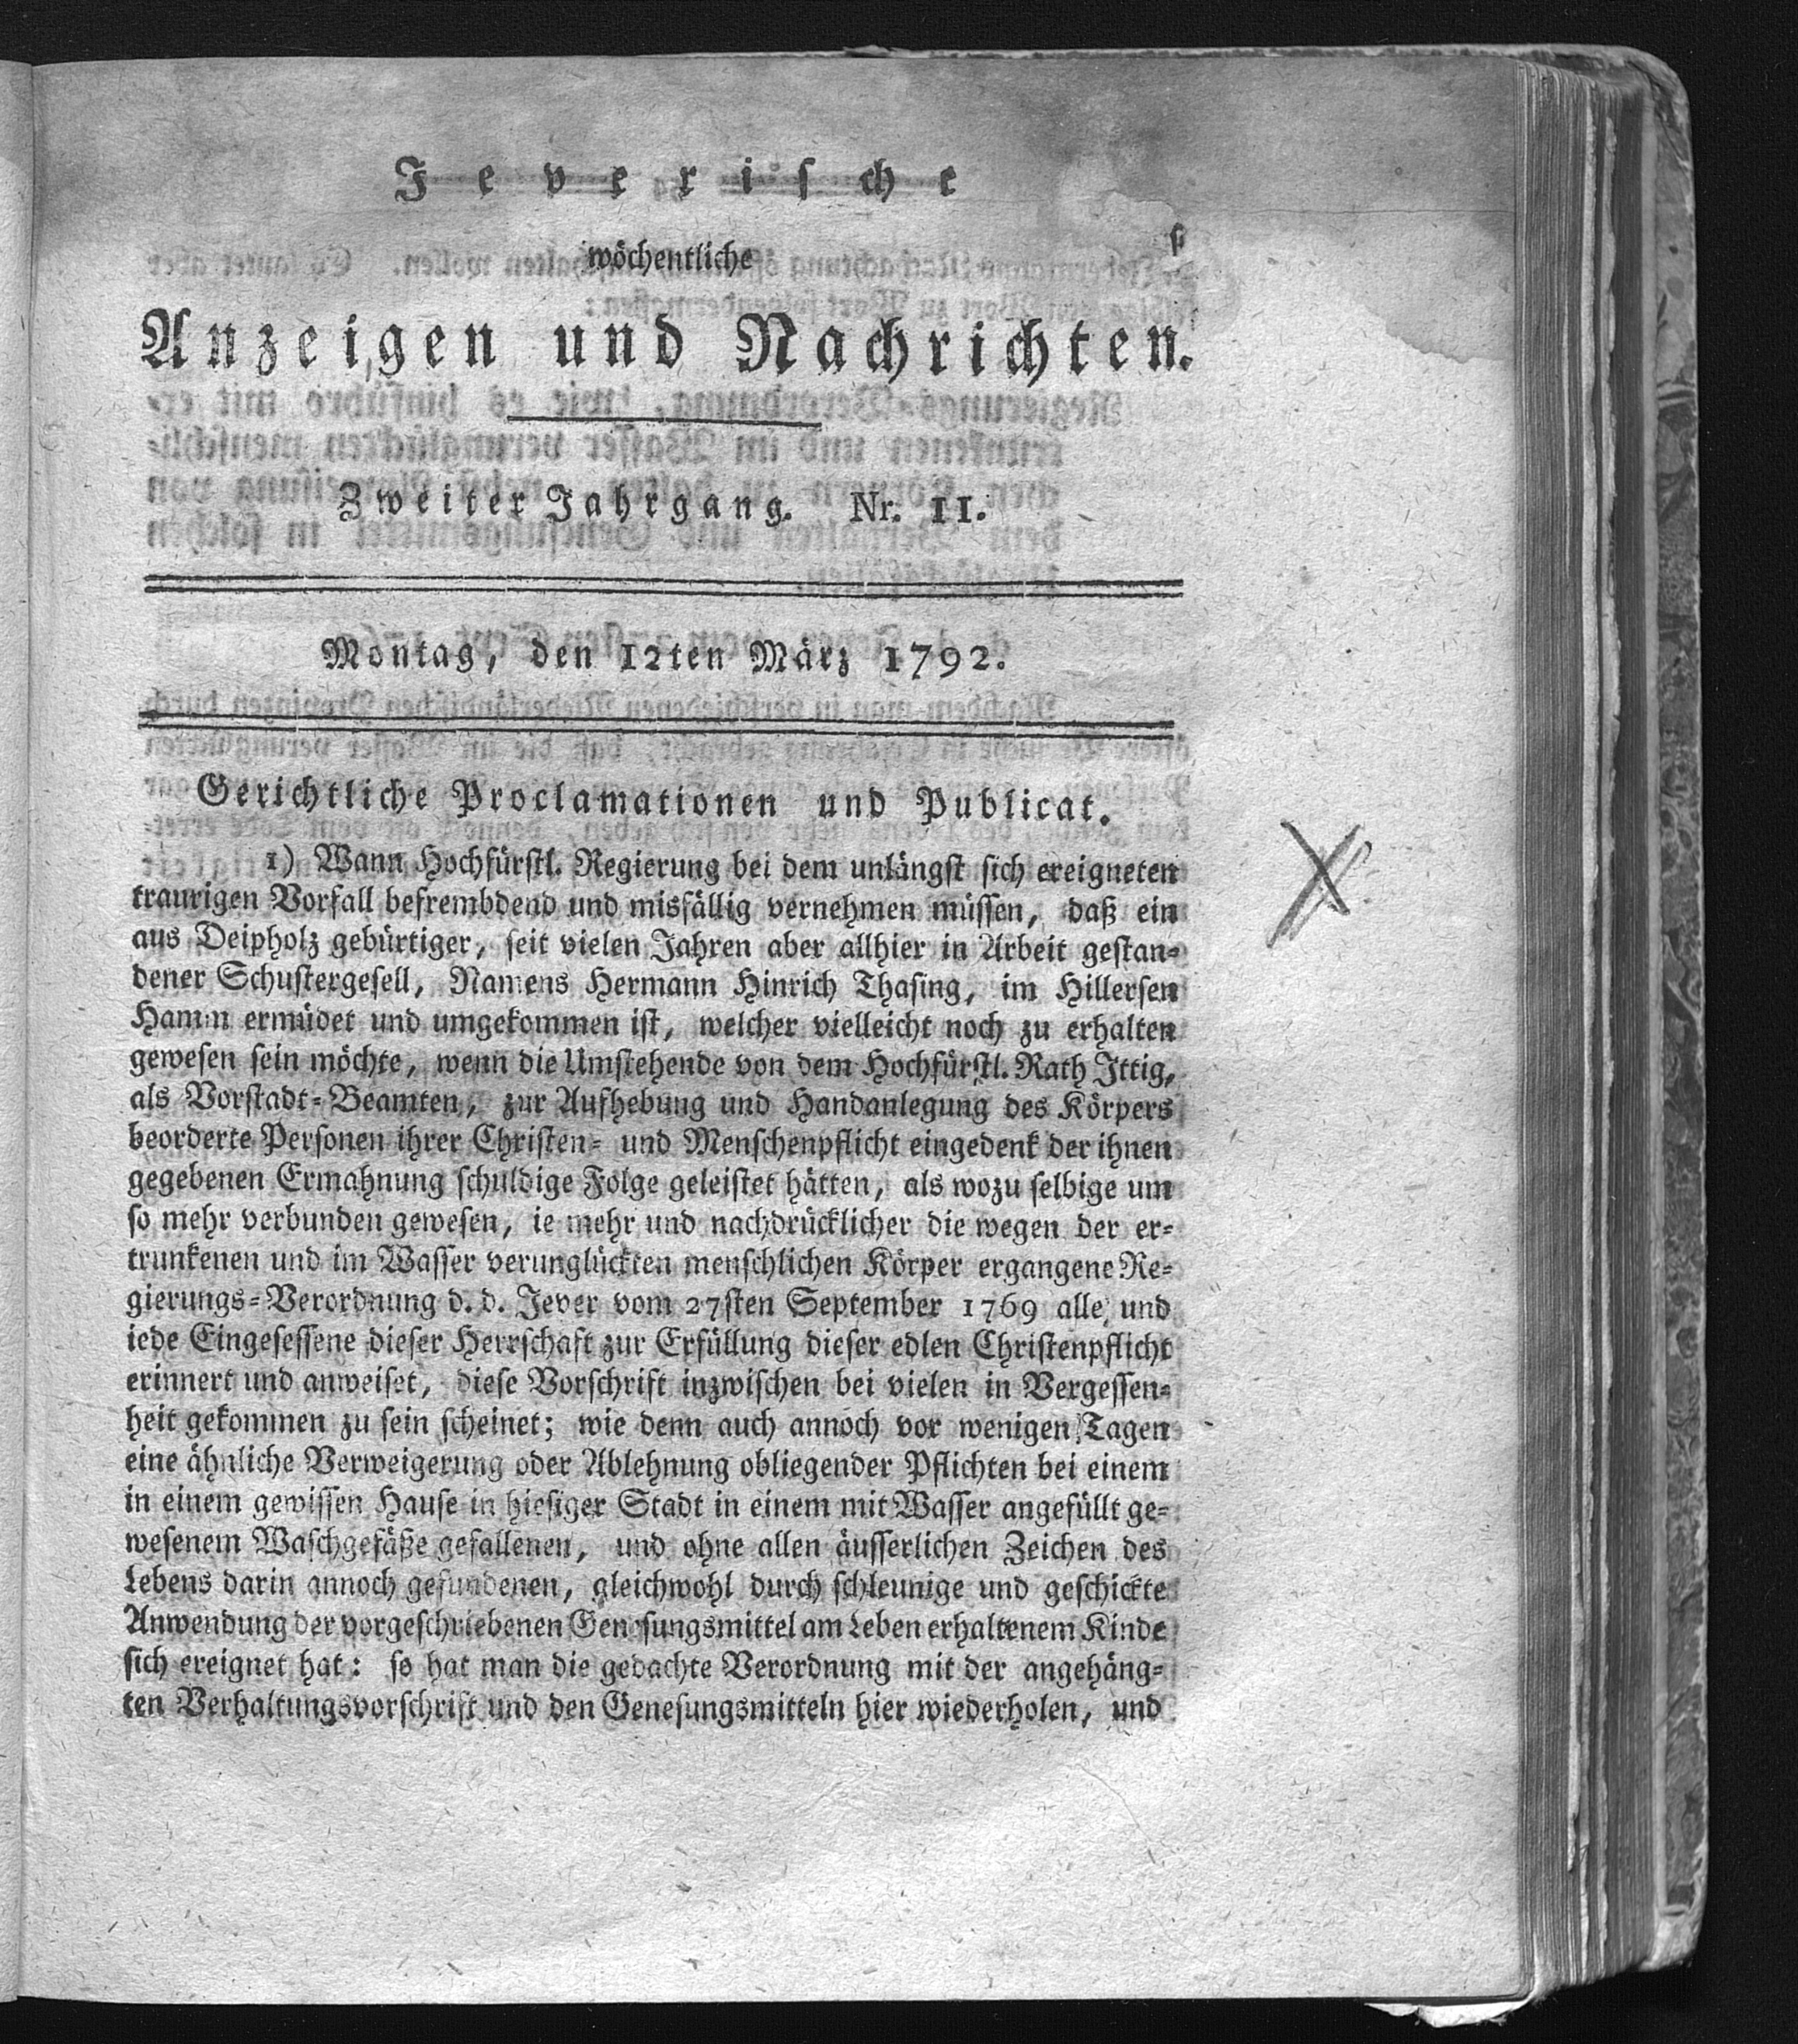 Jeverische
wöchentliche
Anzeigen und Nachrichten.
Zweiter Jahrgang. Nr. 11.
Montag, den 12ten März 1792.
Gerichtliche Proclamationen und Publicat.
1) Wann Hochfürstl. Regierung bei dem unlängst sich ereigneten
traurigen Vorfall befrembdend und misfällig vernehmen müssen, daß ein
aus Deipholz gebürtiger, seit vielen Jahren aber allhier in Arbeit gestan-
dener Schustergesell, Namens Hermann Hinrich Thasing, im Hillersen
Hamm ermüdet und umgekommen ist, welcher vielleicht noch zu erhalten
gewesen sein möchte, wenn die Umstehende von dem Hochfürstl. Rath Ittig,
als Vorstadt-Beamten, zur Aufhebung und Handanlegung des Körpers
beorderte Personen ihrer Christen- und Menschenpflicht eingedenk der ihnen
gegebenen Ermahnung schuldige Folge geleistet hätten, als wozu selbige um
so mehr verbunden gewesen, ie mehr und nachdrücklicher die wegen der er-
trunkenen und im Wasser verunglückten menschlichen Körper ergangene Re-
gierungs-Verordnung d. d. Jever vom 27sten September 1769 alle und
iede Eingesessene dieser Herrschaft zur Erfüllung dieser edlen Christenpflicht
erinnert und anweiset, diese Vorschrift inzwischen bei vielen in Vergessen-
heit gekommen zu sein scheinet; wie denn auch annoch vor wenigen Tagen
eine ähnliche Verweigerung oder Ablehnung obliegender Pflichten bei einem
in einem gewissen Hause in hiesiger Stadt in einem mit Wasser angefüllt ge-
wesenem Waschgefäße gefallenen, und ohne allen äusserlichen Zeichen des
Lebens darin annoch gefundenen, gleichwohl durch schleunige und geschickte
Anwendung der vorgeschriebenen Genesungsmittel am Leben erhaltenem Kinde
sich ereignet hat: so hat man die gedachte Verordnung mit der angehäng-
ten Verhaltungsvorschrift und den Genesungsmitteln hier wiederholen, und